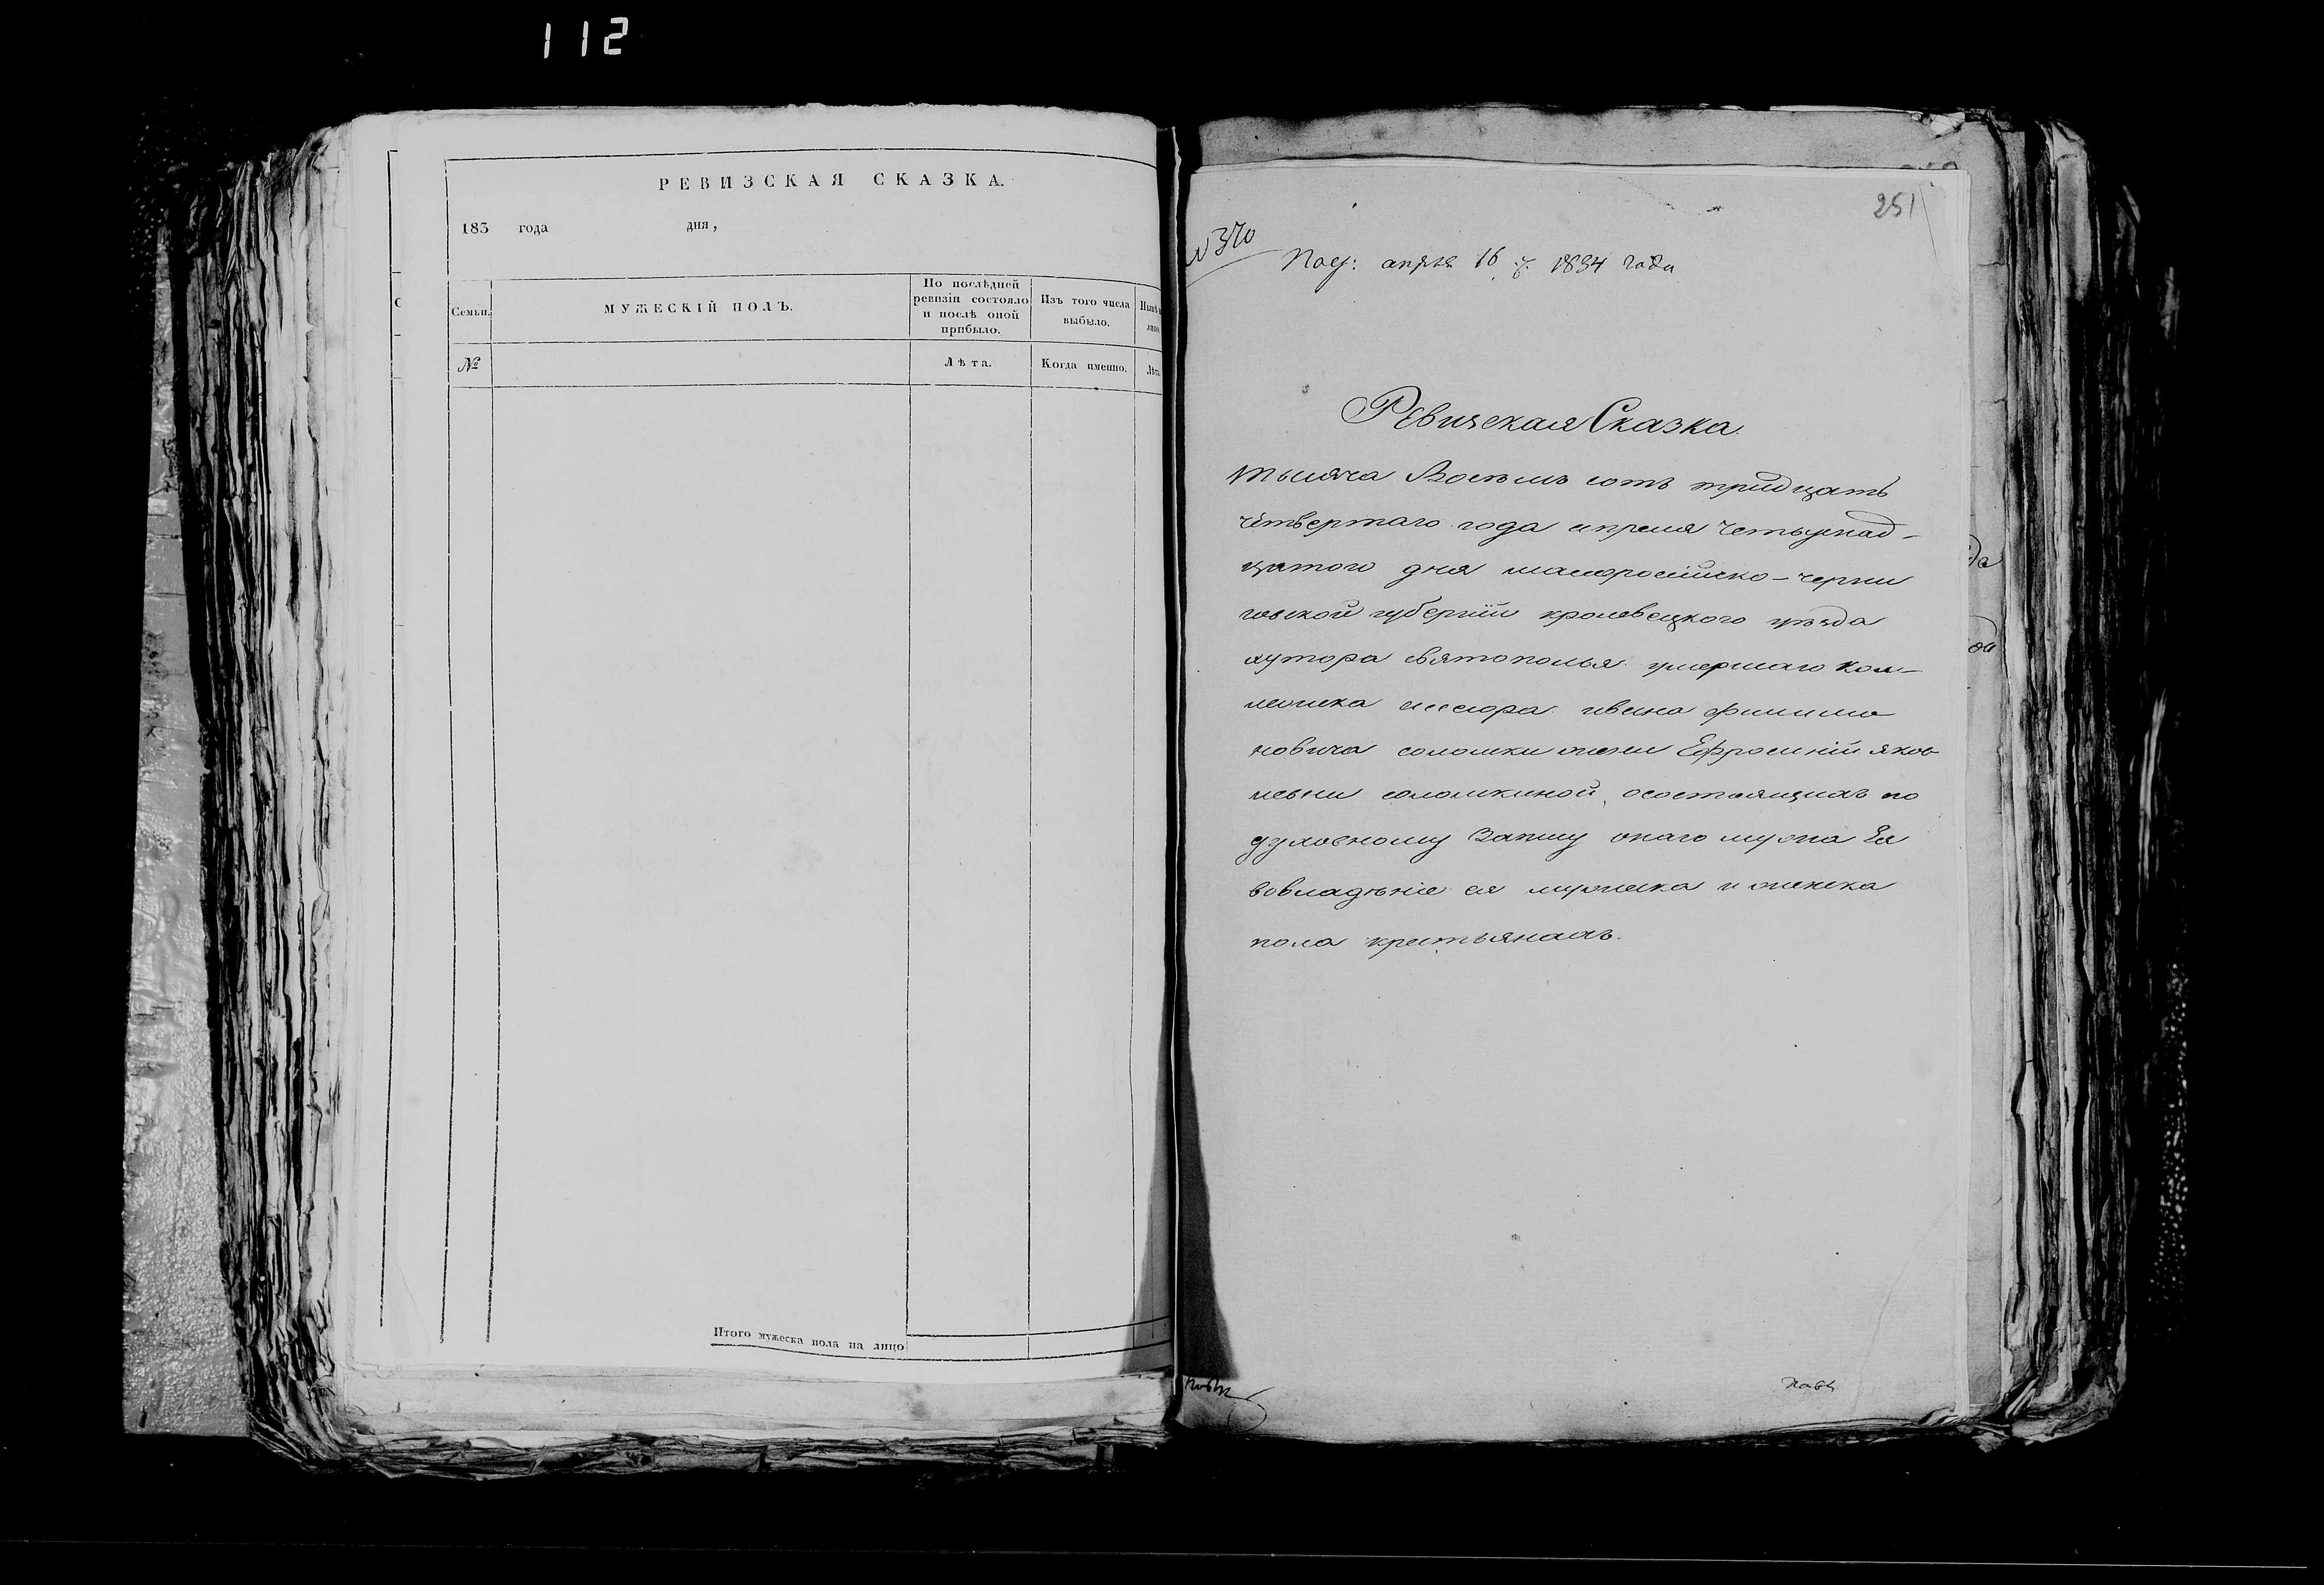 112
РЕВИЗСКАЯ СКАЗКА.
183 года дня,
Семьи.
МУЖЕСКІЙ ПОЛЪ.
По послѣдней ревизіи состояло и послѣ оной прибыло.
Изъ того числа выбыло.
№
Лѣта.
Когда именно.
Лѣта
Итого мужеска пола на лицо
251
№ 370
Пол: апрѣля 16 ч. 1834 года
Ревизская Сказка.
тысяча Восемь сотъ тридцать
четвертаго года апреля четырнад-
цятого дня малороссійско-черни
говской губерніи кролевецкого уѣзда
хутора святополья умершаго кол-
лежска ассесора ивана филимо
новича соломки жени Ефросиніи яков
левни соломкиной, осостоящихъ по
духовному Запису онаго мужа Ея
вовладѣніе ея мужеска и женска
пола крестьянахъ.